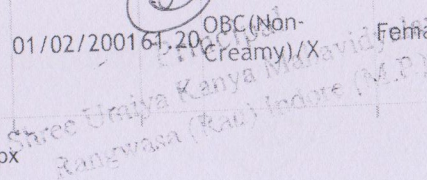 01/02/2001 61.20 OBC(Non-
Creamy)/X Fema
Principal
Shree Umiya Kanya Mahavidyalaya
Rangwasa (Rau) Indore (M.P.)
ox